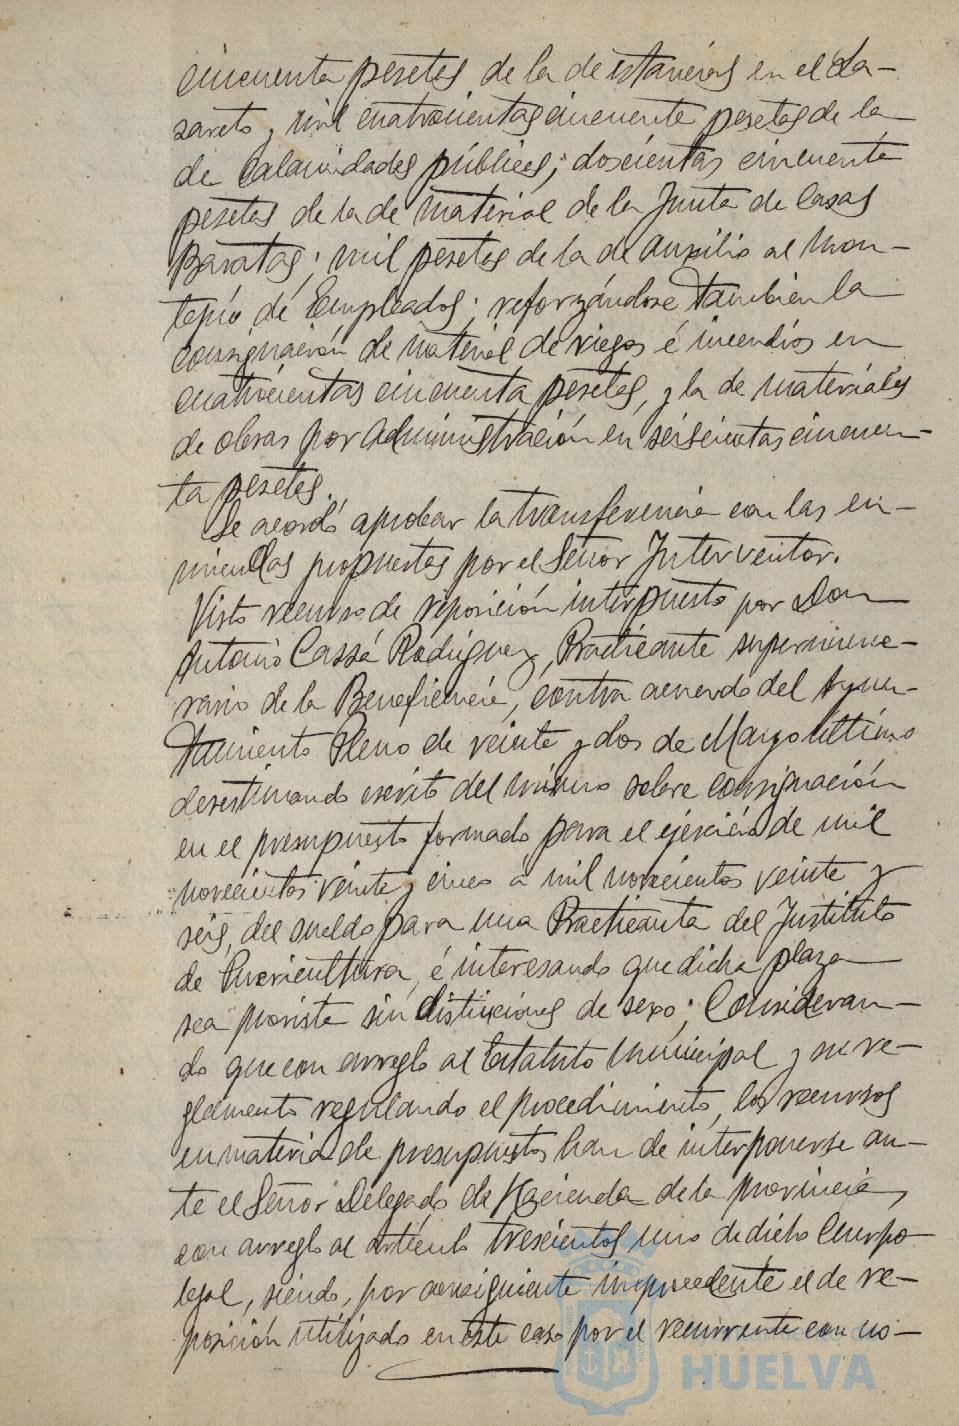 cincuenta pesetas de la de estancias en el La-
zareto y mil cuatrocientas cincuenta pesetas de la
de Calamidades públicas; doscientas cincuenta
pesetas de la de material de la Junta de Casas
Baratas; mil pesetas de la de auxilio al Mon-
tepío de Empleados; reforzándose también la
consignación de material de riegos é incendios en
cuatrocientas cincuenta pesetas, y la de materiales
de obras por Administración en seiscientas cincuen-
ta pesetas.
Se acordó aprobar la transferencia con las en-
miendas propuestas por el Señor Interventor.
Visto recurso de reposición interpuesto por Don
Antonio Cassá Rodriguez, Practicante supernume-
rario de la Beneficencia, contra acuerdo del Ayun-
tamiento Pleno de veinte y dos de Marzo último
desestimando escrito del mismo sobre consignación
en el presupuesto formado para el ejercicio de mil
novecientos veinte y cinco á mil novecientos veinte y
seis, del sueldo para una Practicanta del Instituto
de Puericultura, é interesando que dicha plaza
sea provista sin distinciones de sexo; Consideran-
do que con arreglo al Estatuto Municipal y su re-
glamento regulando el procedimiento, los recursos
en materia de presupuestos han de interponerse an-
te el Señor Delegado de Hacienda de la provincia,
con arreglo al artículo trescientos uno de dicho Cuerpo
legal, siendo, por consiguiente improcedente el de re-
posición utilizado en este caso por el recurrente con no-
HUELVA